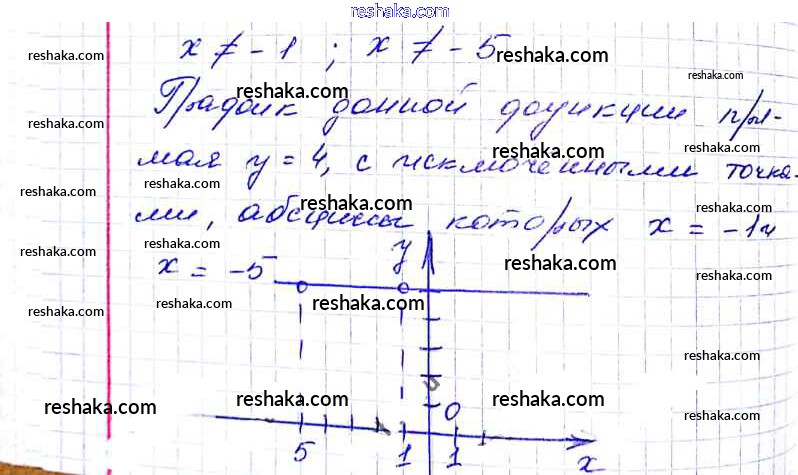 reshaka.com
x ≠ -1 ; x ≠ -5
График данной функции пря-
мая y = 4, с исключенными точка-
ми, абсциссы которых x = -1 и
x = -5
y
0
5 1 1 x
reshaka.com reshaka.com
reshaka.com
reshaka.com
reshaka.com reshaka.com
reshaka.com reshaka.com
reshaka.com reshaka.com
reshaka.com reshaka.com
reshaka.com reshaka.com
reshaka.com reshaka.com
reshaka.com reshaka.com reshaka.com
reshaka.com
reshaka.com
reshaka.com reshaka.com
reshaka.com reshaka.com reshaka.com
reshaka.com